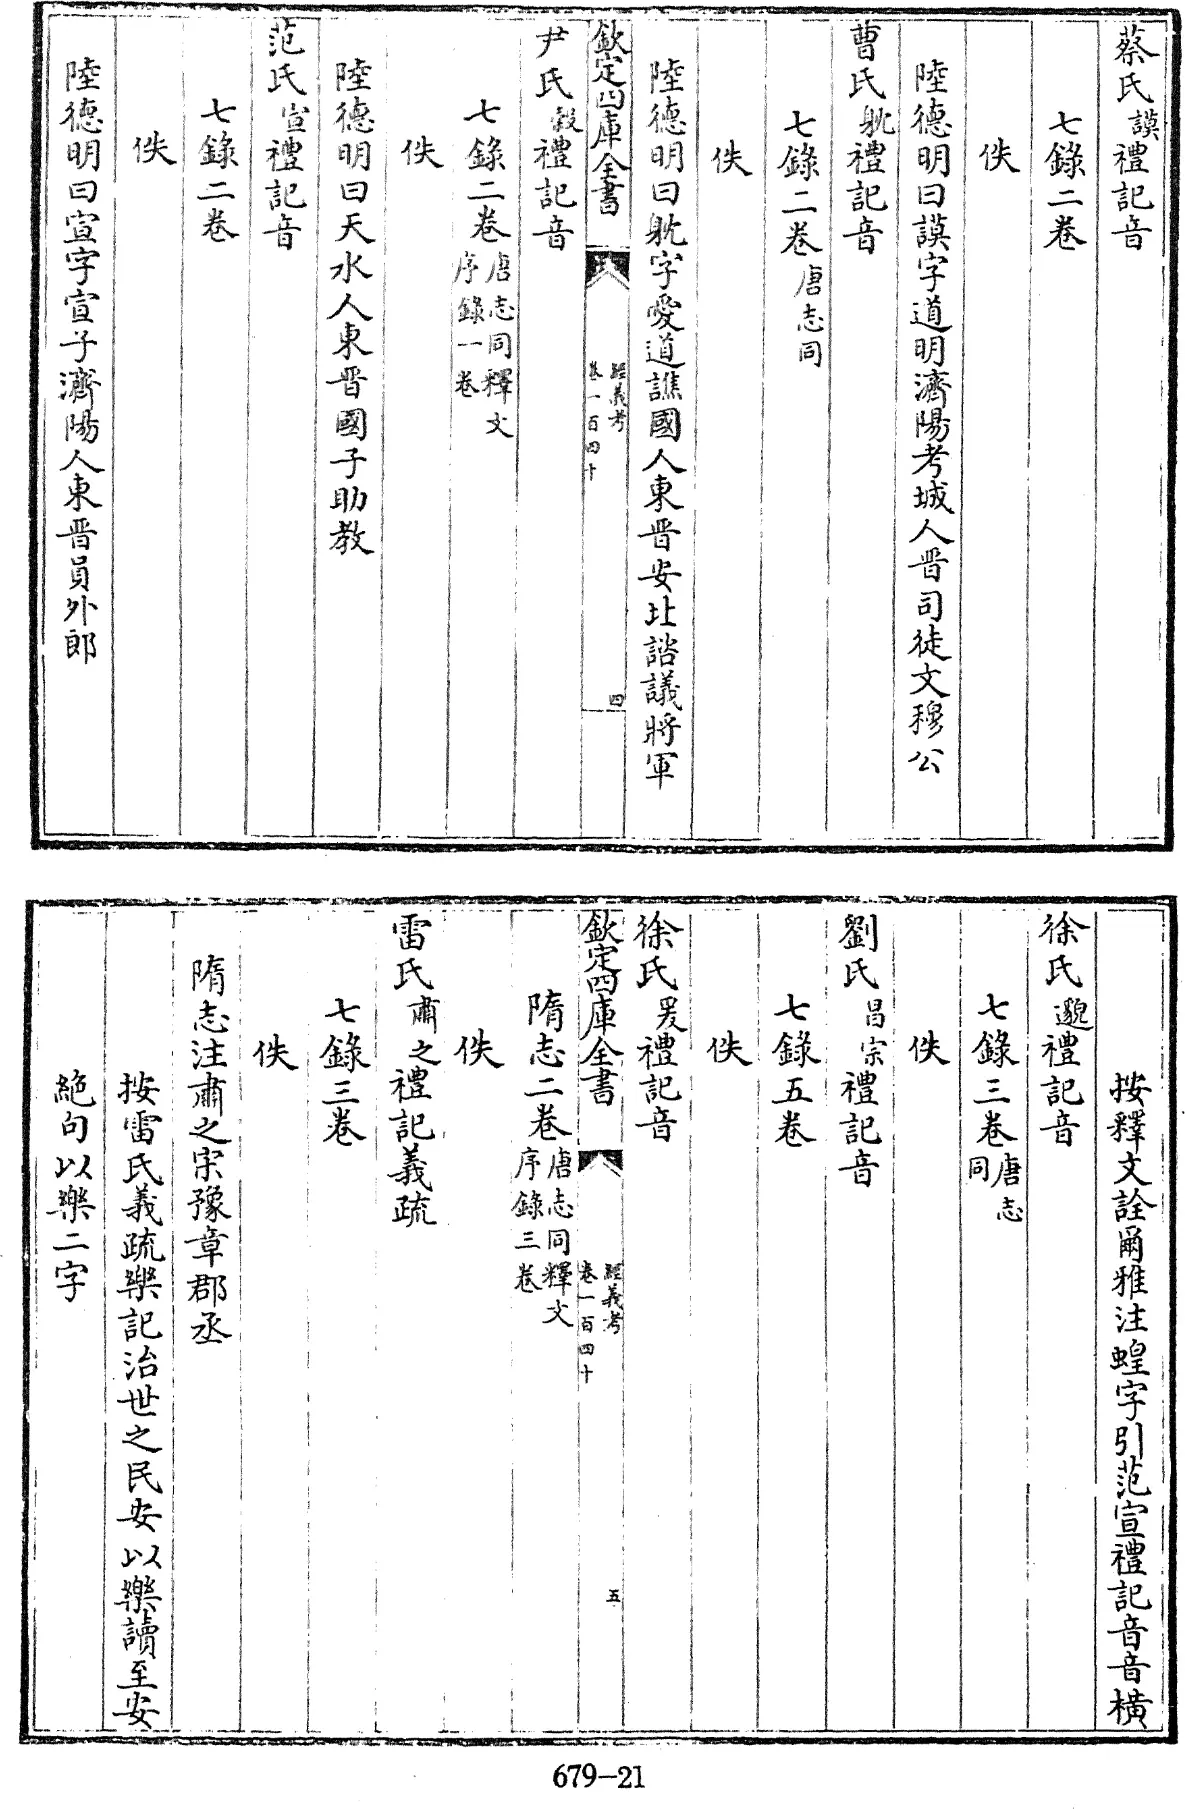 蔡氏謨禮記音
七錄二卷
佚
陸德明曰謨字道明濟陽考城人晉司徒文穆公
曹氏躭禮記音
七錄二卷唐志同
佚
陸德明曰躭字愛道譙國人東晉安北諮議將軍
欽定四庫全書
經義考
卷一百四十
四
尹氏毅禮記音
七錄二卷唐志同釋文
序錄一卷
佚
陸德明曰天水人東晉國子助教
范氏宣禮記音
七錄二卷
佚
陸德明曰宣字宣子濟陽人東晉員外郎
按釋文詮爾雅注蝗字引范宣禮記音音橫
徐氏邈禮記音
七錄三卷唐志
同
佚
劉氏昌宗禮記音
七錄五卷
佚
徐氏爰禮記音
欽定四庫全書
經義考
卷一百四十
五
隋志二卷唐志同釋文
序錄三卷
佚
雷氏肅之禮記義疏
七錄三卷
佚
隋志注肅之宋豫章郡丞
按雷氏義疏樂記治世之民安以樂讀至安
絕句以樂二字
679-21